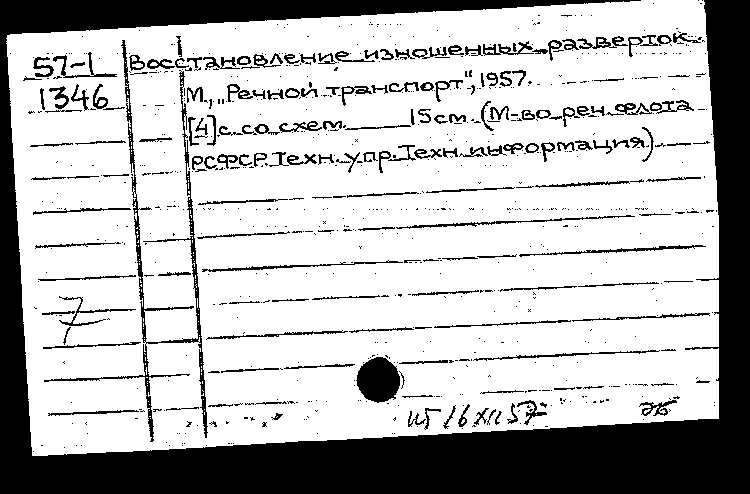 57-1 Восстановление изношенных разверток.
1346 М., „Речной транспорт", 1957.
[4]с. со схем. 15см. (М-во реч. флота
РСФСР. Техн. упр. Техн. информация)
7
16 XII 57